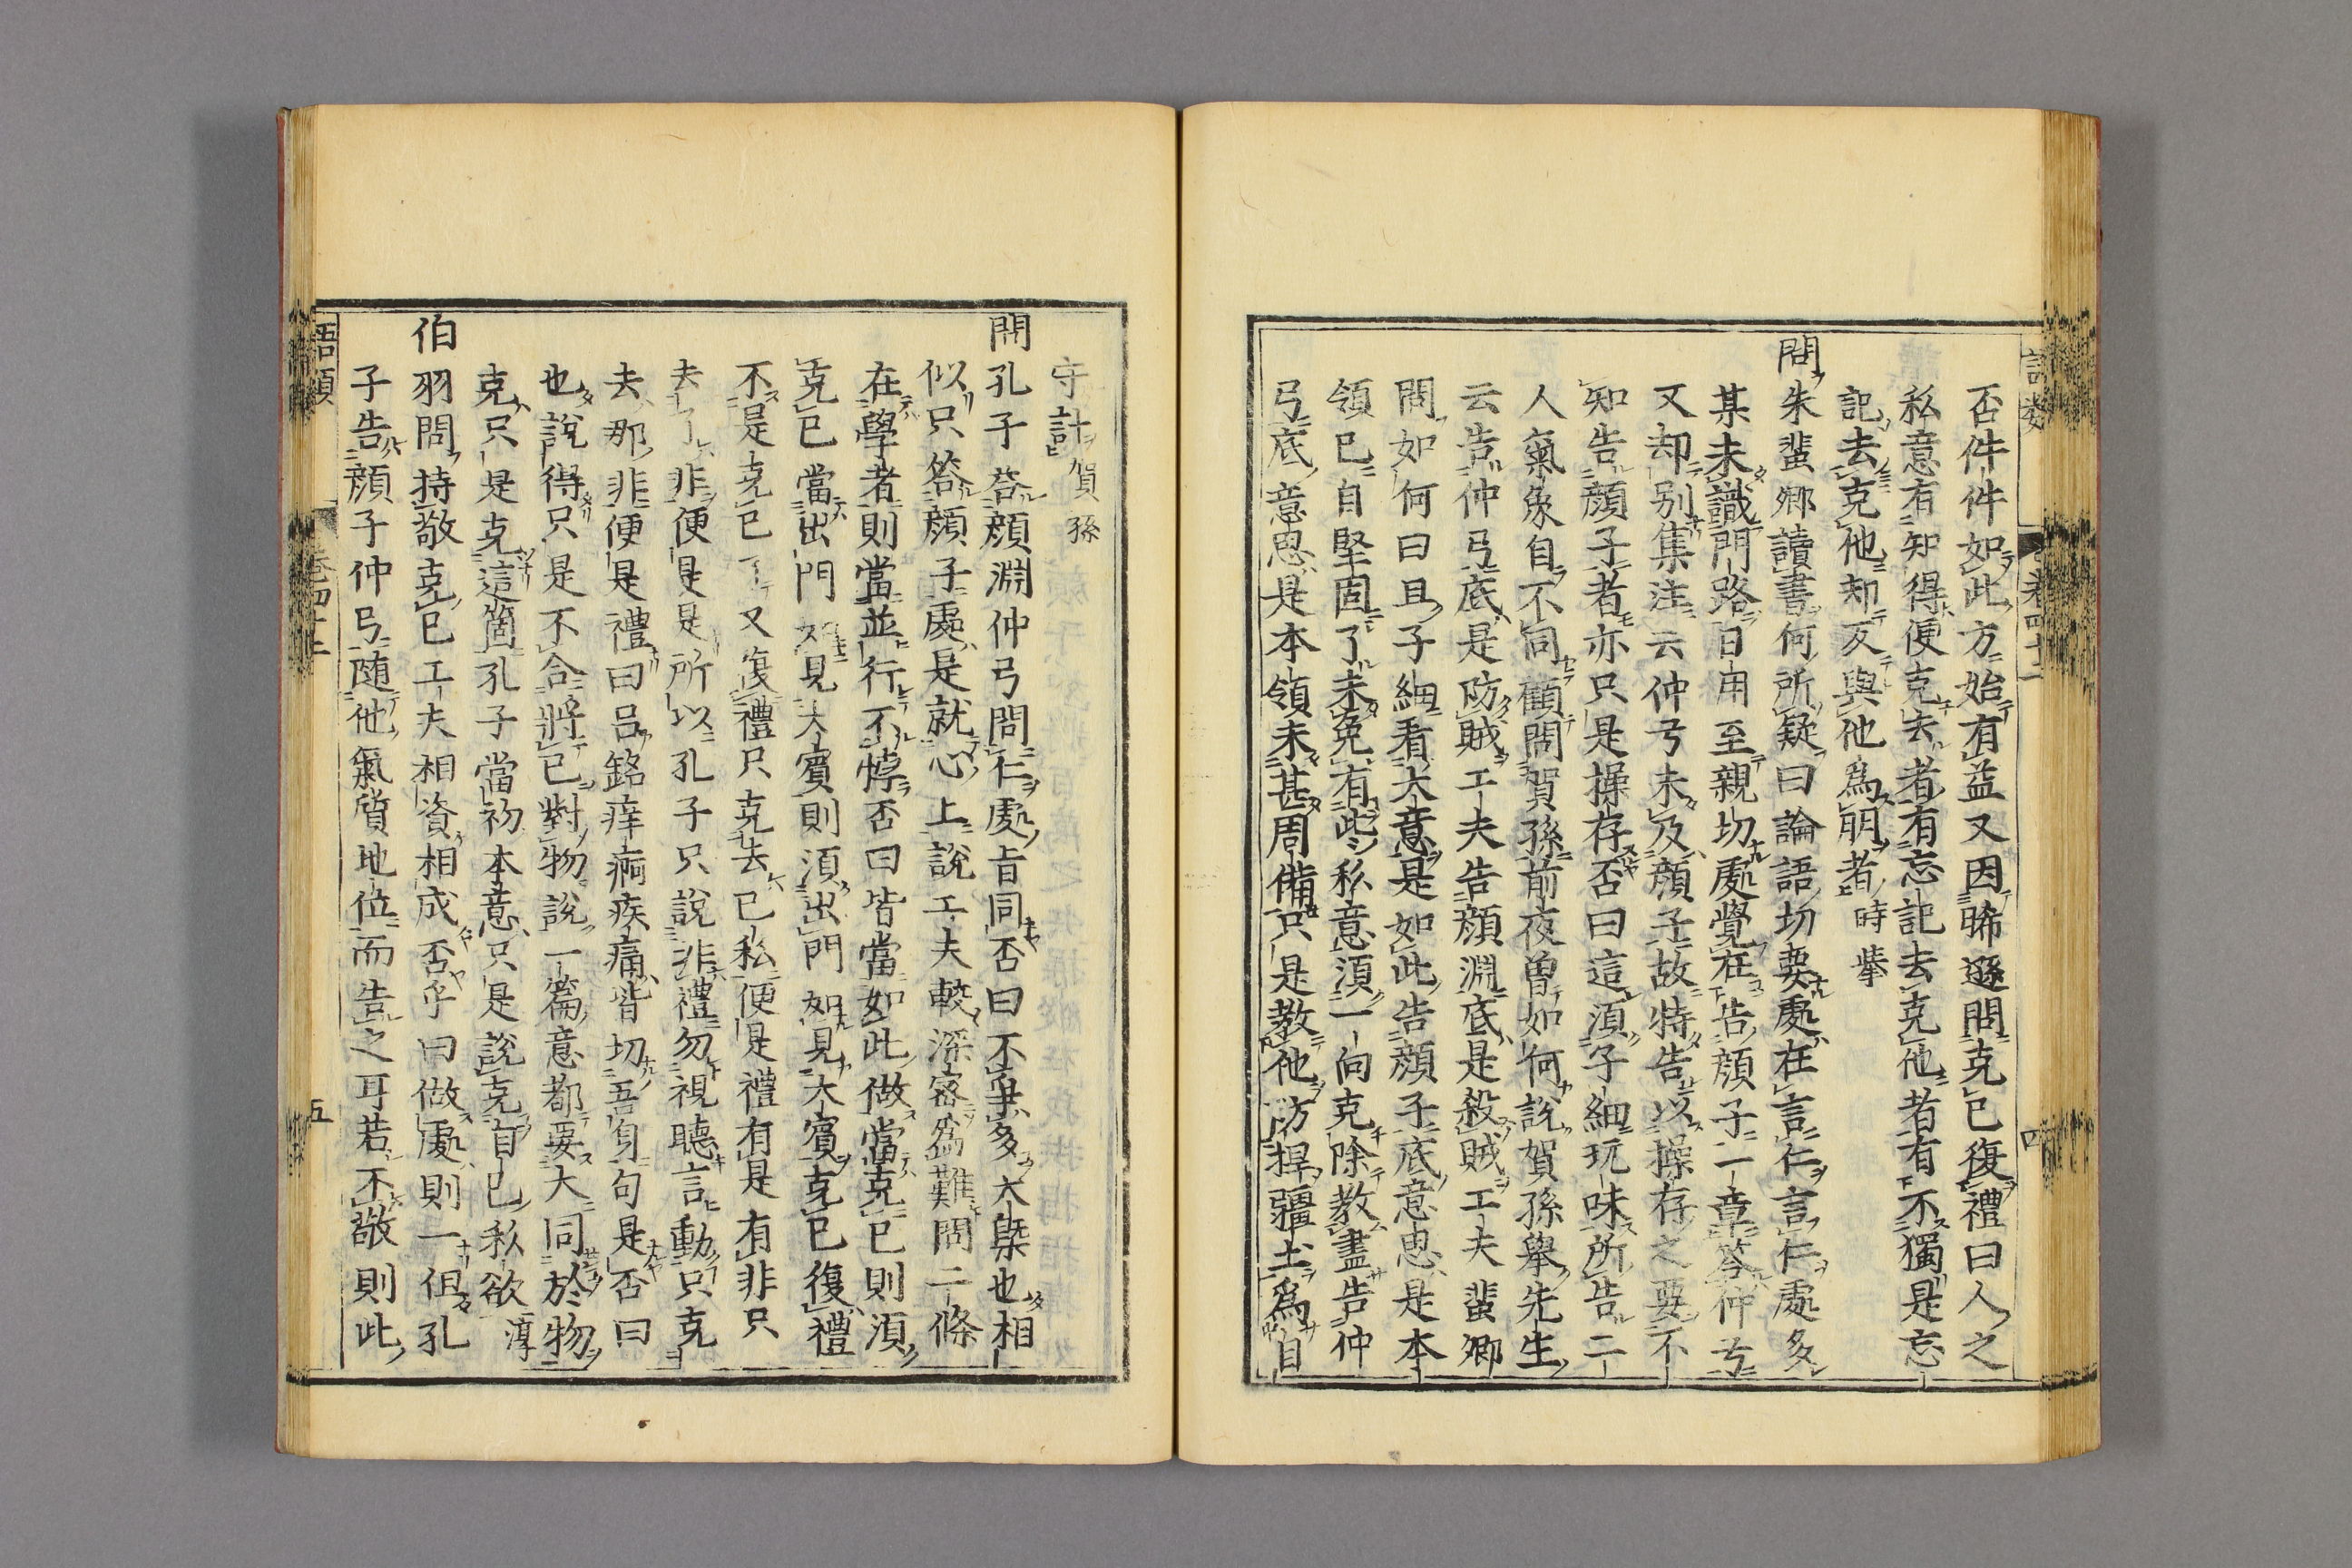 語類
卷四十二
四
否件件如此方始有益又因晞遜問克己復禮曰人之
私意有知得便克去者有忘記去克他者有不獨是忘
記去克他却反與他為朋者時擧
問朱蜚卿讀書何所疑曰論語切要處在言仁言仁處多
某未識門路日用至親切處覺在告顔子一章答仲弓
又却別集注云仲弓未及顔子故特告以操存之要不
知告顔子者亦只是操存否曰這須子細玩味所告二
人氣象自不同顧問賀孫前夜曾如何說賀孫擧先生
云告仲弓底是防賊工夫告顔淵底是殺賊工夫蜚卿
問如何曰且子細看大意是如此告顔子底意思是本
領已自堅固了未免有些私意須一向克除教盡告仲
弓底意思是本領未甚周備只是教他防捍疆土為自
守計賀孫
問孔子答顔淵仲弓問仁處旨同否曰不爭多大槩也相
似只答顔子處是就心上說工夫較深密為難問二條
在學者則當並行不悖否曰皆當如此做當克己則須
克己當出門如見大賓則須出門如見大賓克己復禮
不是克己了又復禮只克去己私便是禮有是有非只
去了非便是是所以孔子只說非禮勿視聽言動只克
去那非便是禮曰呂銘痒痾疾痛皆切吾身句是否曰
也說得只是不合將己對物說一篇意都要大同於物
克只是克這箇孔子當初本意只是說克自己私欲淳
伯羽問持敬克己工夫相資相成否乎曰做處則一但孔
子告顔子仲弓随他氣質地位而告之耳若不敬則此
語類
卷四十二
五